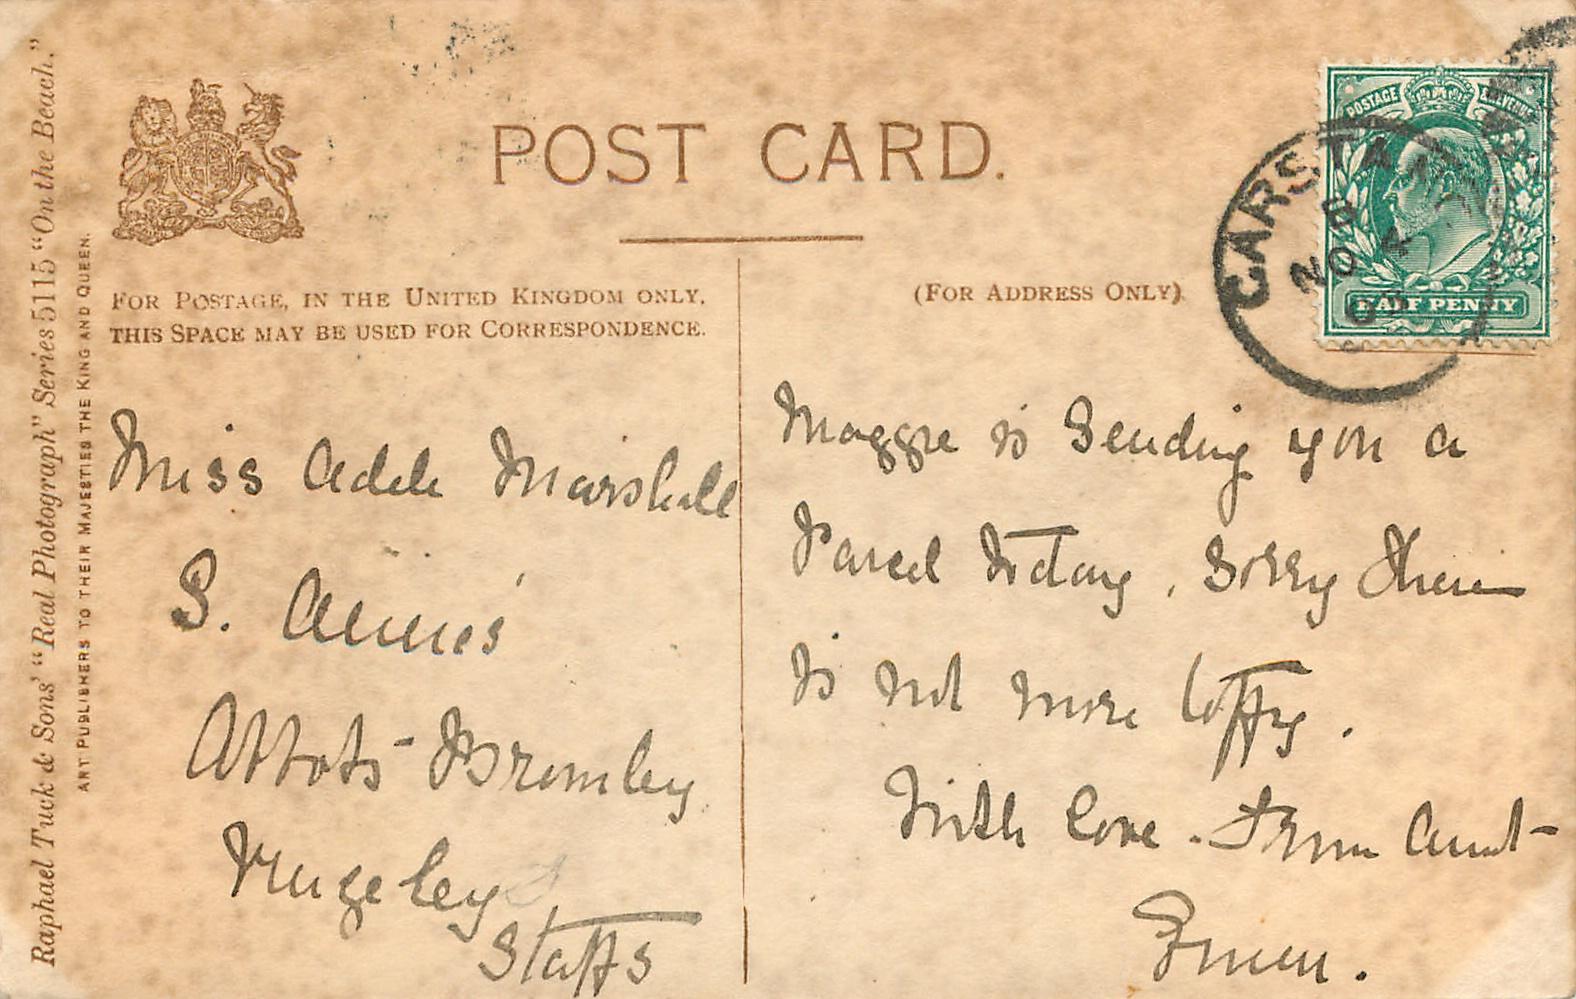 POST CARD.
FOR POSTAGE, IN THE UNITED KINGDOM ONLY,
THIS SPACE MAY BE USED FOR CORRESPONDENCE.
(FOR ADDRESS ONLY)
Raphael Tuck & Sons' "Real Photograph" Series 5115 "On the Beach."
ART PUBLISHERS TO THEIR MAJESTIES THE KING AND QUEEN.
POSTAGE REVENUE
HALF PENNY
CARSTA
NO 4
Miss Adele Marshall
S. Annes'
Abbots-Bromley
Rugeley
Staffs
Maggie is Sending you a
Parcel Today, Sorry There
Is not more toffy.
With love. From Aunt